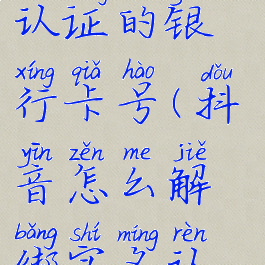 认证的银
xíng qiǎ hào dǒu
行卡号(抖
yīn zěn me jiě
音怎么解
bǎng shí míng rèn
绑实名认